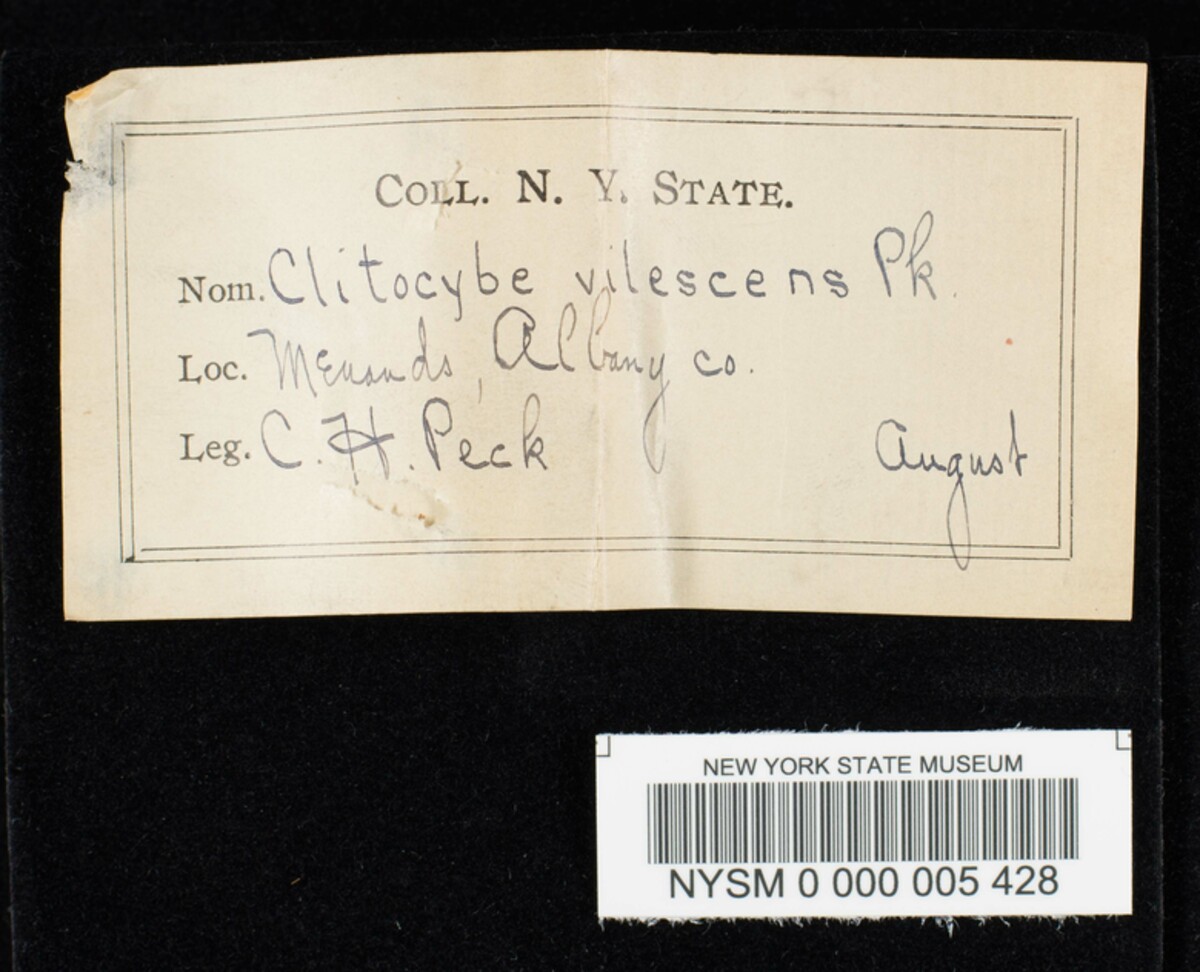 COLL. N. Y. STATE.
Nom. Clitocybe vilescens Pk.
Loc. Menands, Albany co.
Leg. C. H. Peck August
NEW YORK STATE MUSEUM
NYSM 0 000 005 428